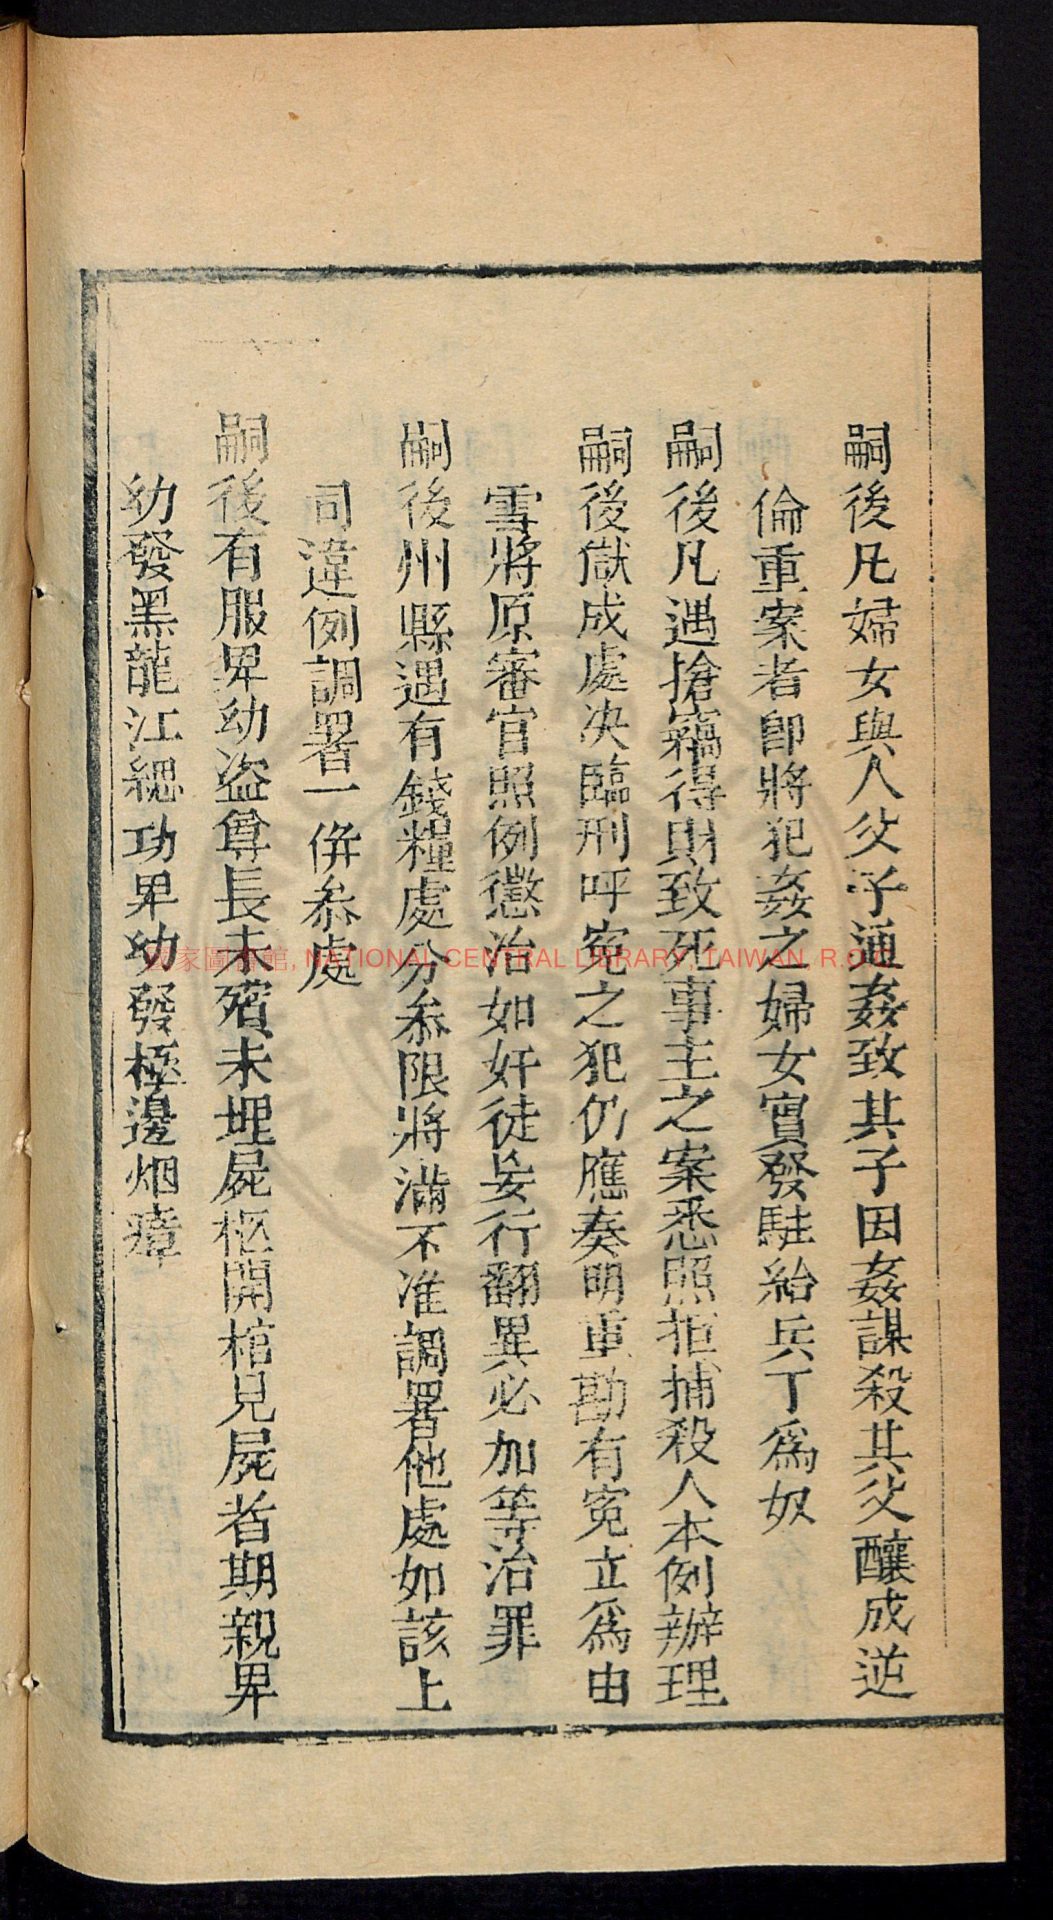 嗣後凡婦女與人父子通姦致其子因姦謀殺其父釀成逆
倫重案者卽將犯姦之婦女實發駐給兵丁爲奴
嗣後凡遇搶竊得財致死事主之案悉照拒捕殺人本例辦理
嗣後獄成處决臨刑呼寃之犯仍應奏明重勘有寃立爲由
雪將原審官照例懲治如奸徒妄行翻異必加等治罪
嗣後州縣遇有錢糧處分叅限將滿不准調署他處如該上
司違例調署一併叅處
嗣後有服卑幼盜尊長未殯未埋屍柩開棺見屍者期親卑
幼發黑龍江緦功卑幼發極邊烟瘴
國家圖書館, NATIONAL CENTRAL LIBRARY, TAIWAN, R.O.C